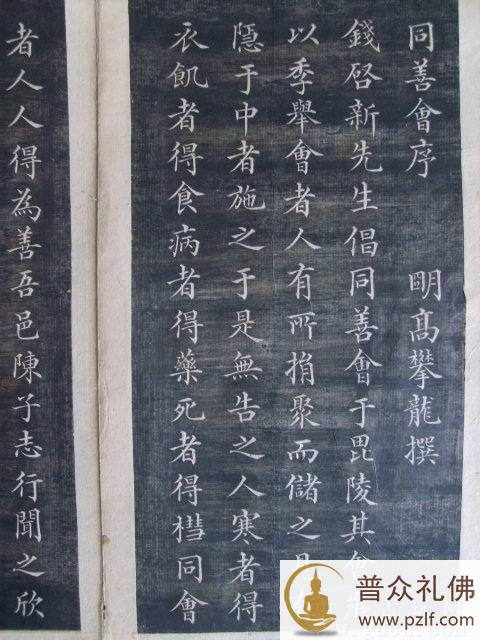 同善會序　明高攀龍撰
錢啓新先生倡同善會于毘陵其會
以季舉會者人有所捐聚而儲之
隱于中者施之于是無告之人寒者得
衣飢者得食病者得藥死者得槥同會
者人人得為善吾邑陳子志行聞之欣
普众礼佛
www.pzlf.com